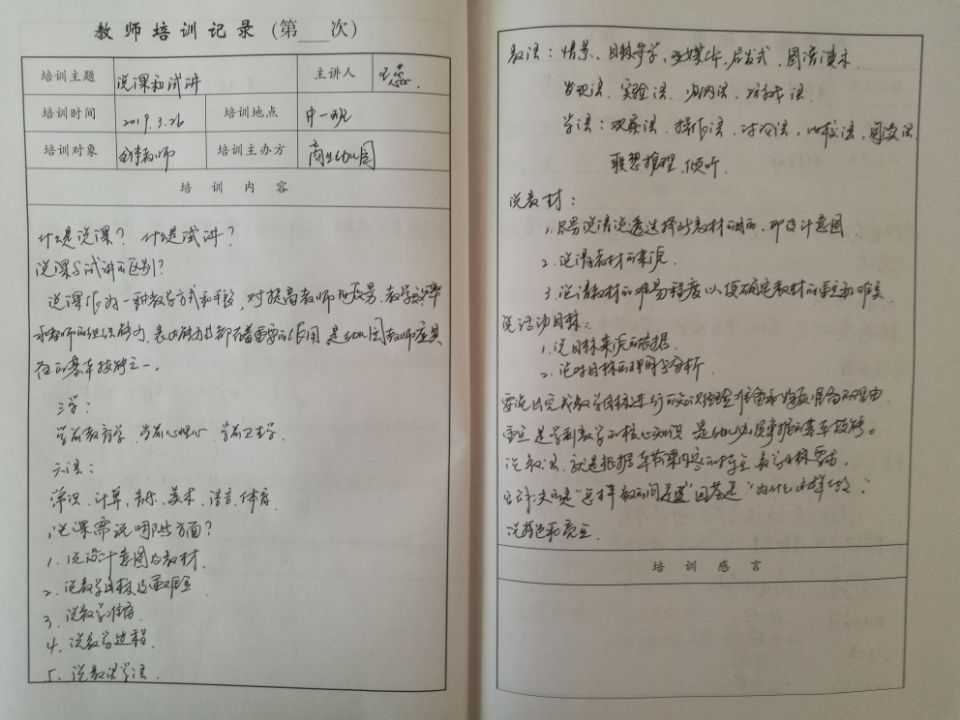 教师培训记录（第___次）
培训主题 说课和试讲 主讲人 王蕊
培训时间 2019.3.26 培训地点 中一班
培训对象 全体教师 培训主办方 幼儿园
培训内容
什么是说课？ 什么是试讲？
说课与试讲的区别？
说课作为一种教学方式和手段，对提高教师的教学效率
和教师的组织能力，表达能力都有着重要的作用 是幼儿园教师应具
在的基本技能之一。
三学：
学前教育学、学前心理学、学前卫生学
六法：
常识、计算、音乐、美术、语言、体育
说课需说哪些方面？
1. 说设计意图与教材
2. 说教学目标及重难点
3. 说教学准备
4. 说教学过程
5. 说教法学法
教法：情景、目标导学、多媒体、启发式、图谱演示
发现法、实验法、归纳法、游戏法
学法：观察法、操作法、讨论法，比较法，阅读法
联想推理、倾听
说教材：
1. 说清说透选择此教材的目的，即设计意图
2. 说清教材的来源
3. 说清教材的难易程度以便确定教材的重点和难点
说活动目标：
1. 说目标来源的依据
2. 说对目标的理解与分析
要说出完成教学目标进行的知识经验准备和物质准备的理由
重点是学到教学的核心知识 是幼儿必须掌握的基本技能。
说教法，就是根据本节课内容的特点 教学目标要求
解决的是“怎样教的问题”回答是“为什么这样做”
说特色和亮点
培训感言